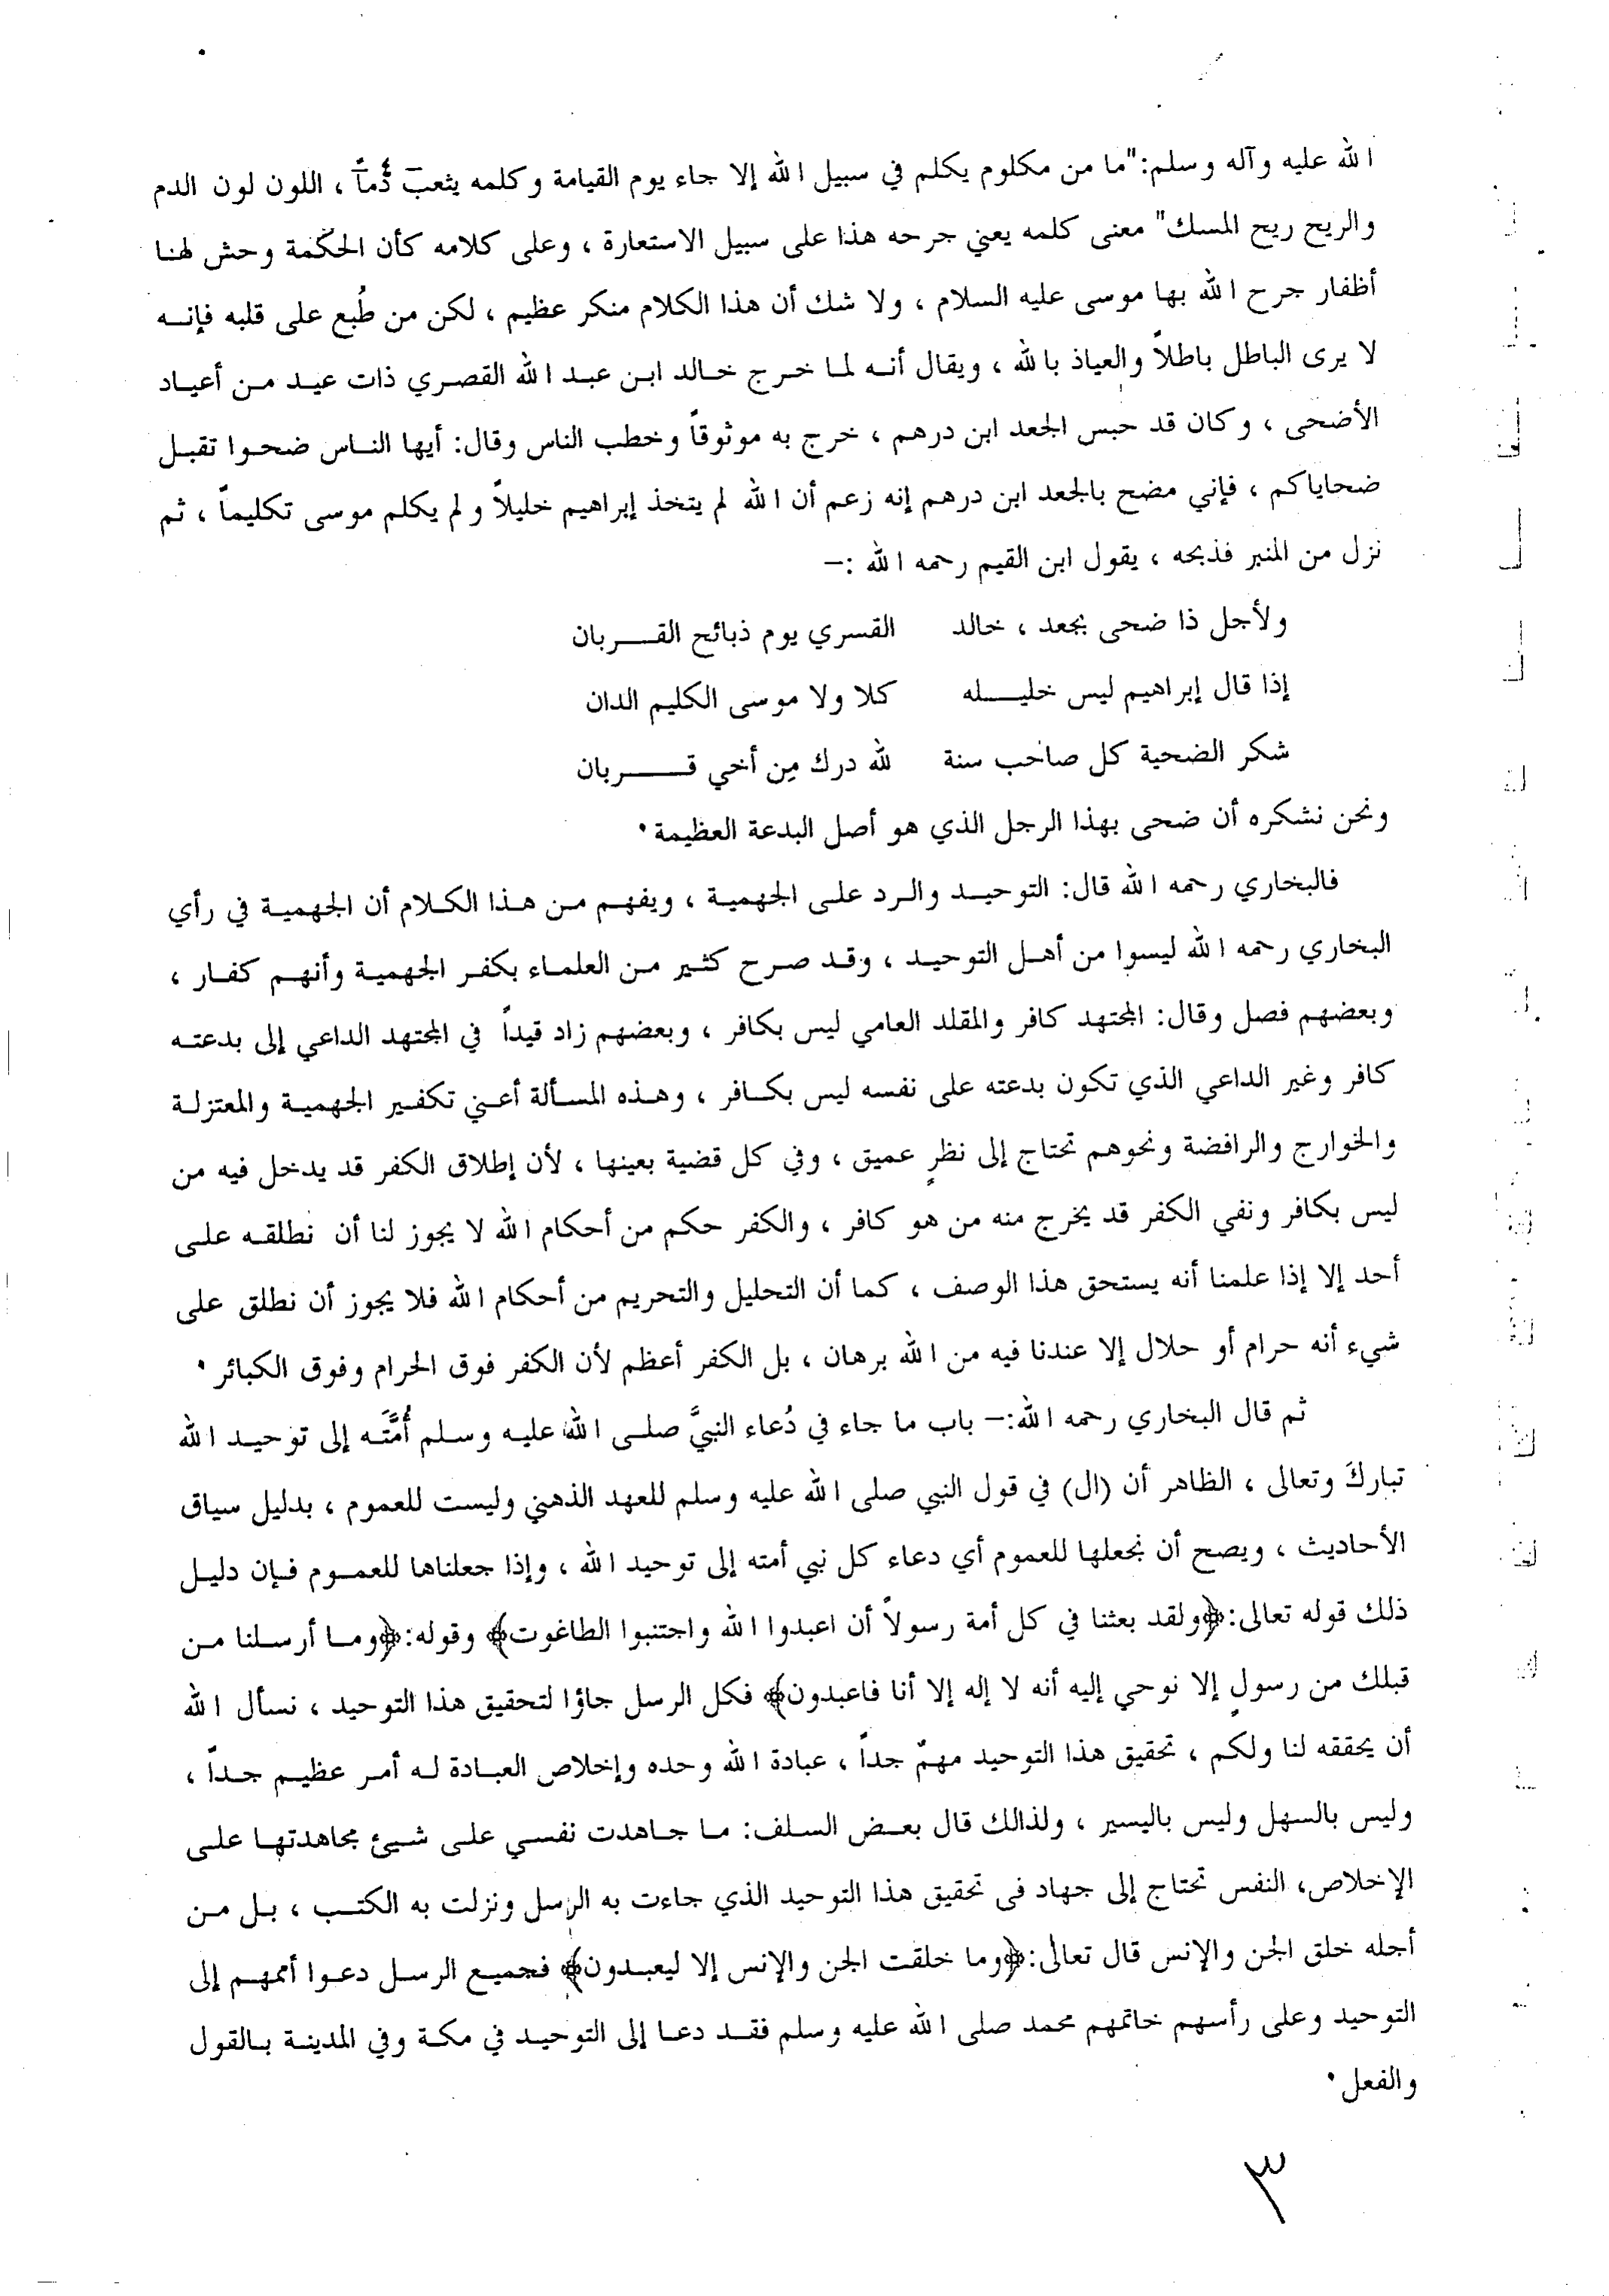 الله عليه وآله وسلم:"ما من مكلوم يكلم في سبيل الله إلا جاء يوم القيامة وكلمه يثعب دُماً ، اللون لون الدم
والريح ريح المسك" معنى كلمه يعني جرحه هذا على سبيل الاستعارة ، وعلى كلامه كأن الحكمة وحش لهنا
أظفار جرح الله بها موسى عليه السلام ، ولا شك أن هذا الكلام منكر عظيم ، لكن من طُبع على قلبه فإنه
لا يرى الباطل باطلاً والعياذ بالله ، ويقال أنه لما خرج خالد ابن عبد الله القصري ذات عيد من أعياد
الأضحى ، وكان قد حبس الجعد ابن درهم ، خرج به موثوقاً وخطب الناس وقال: أيها الناس ضحوا تقبل
ضحاياكم ، فإني مضح بالجعد ابن درهم إنه زعم أن الله لم يتخذ إبراهيم خليلاً ولم يكلم موسى تكليماً ، ثم
نزل من المنبر فذبحه ، يقول ابن القيم رحمه الله :–
ولأجل ذا ضحى بجعد ، خالد القسري يوم ذبائح القربان
إذا قال إبراهيم ليس خليله كلا ولا موسى الكليم الدان
شكر الضحية كل صاحب سنة لله درك مِن أخي قربان
ونحن نشكره أن ضحى بهذا الرجل الذي هو أصل البدعة العظيمة .
فالبخاري رحمه الله قال: التوحيد والرد على الجهمية ، ويفهم من هذا الكلام أن الجهمية في رأي
البخاري رحمه الله ليسوا من أهل التوحيد ، وقد صرح كثير من العلماء بكفر الجهمية وأنهم كفار ،
وبعضهم فصل وقال: المجتهد كافر والمقلد العامي ليس بكافر ، وبعضهم زاد قيداً في المجتهد الداعي إلى بدعته
كافر وغير الداعي الذي تكون بدعته على نفسه ليس بكافر ، وهذه المسألة أعني تكفير الجهمية والمعتزلة
والخوارج والرافضة ونحوهم تحتاج إلى نظرٍ عميق ، وفي كل قضية بعينها ، لأن إطلاق الكفر قد يدخل فيه من
ليس بكافر ونفي الكفر قد يخرج منه من هو كافر ، والكفر حكم من أحكام الله لا يجوز لنا أن نطلقه على
أحد إلا إذا علمنا أنه يستحق هذا الوصف ، كما أن التحليل والتحريم من أحكام الله فلا يجوز أن نطلق على
شيء أنه حرام أو حلال إلا عندنا فيه من الله برهان ، بل الكفر أعظم لأن الكفر فوق الحرام وفوق الكبائر .
ثم قال البخاري رحمه الله:– باب ما جاء في دُعاء النبيَّ صلى الله عليه وسلم أُمَّتَه إلى توحيد الله
تباركَ وتعالى ، الظاهر أن (ال) في قول النبي صلى الله عليه وسلم للعهد الذهني وليست للعموم ، بدليل سياق
الأحاديث ، ويصح أن نجعلها للعموم أي دعاء كل نبي أمته إلى توحيد الله ، وإذا جعلناها للعموم فإن دليل
ذلك قوله تعالى:﴿ولقد بعثنا في كل أمة رسولاً أن اعبدوا الله واجتنبوا الطاغوت﴾ وقوله:﴿وما أرسلنا من
قبلك من رسولٍ إلا نوحي إليه أنه لا إله إلا أنا فاعبدون﴾ فكل الرسل جاؤا لتحقيق هذا التوحيد ، نسأل الله
أن يحققه لنا ولكم ، تحقيق هذا التوحيد مهمٌ جداً ، عبادة الله وحده وإخلاص العبادة له أمر عظيم جداً ،
وليس بالسهل وليس باليسير ، ولذالك قال بعض السلف: ما جاهدت نفسي على شيئ مجاهدتها على
الإخلاص، النفس تحتاج إلى جهاد فى تحقيق هذا التوحيد الذي جاءت به الرسل ونزلت به الكتب ، بل من
أجله خلق الجن والإنس قال تعالى:﴿وما خلقت الجن والإنس إلا ليعبدون﴾ فجميع الرسل دعوا أممهم إلى
التوحيد وعلى رأسهم خاتمهم محمد صلى الله عليه وسلم فقد دعا إلى التوحيد في مكة وفي المدينة بالقول
والفعل .
٣